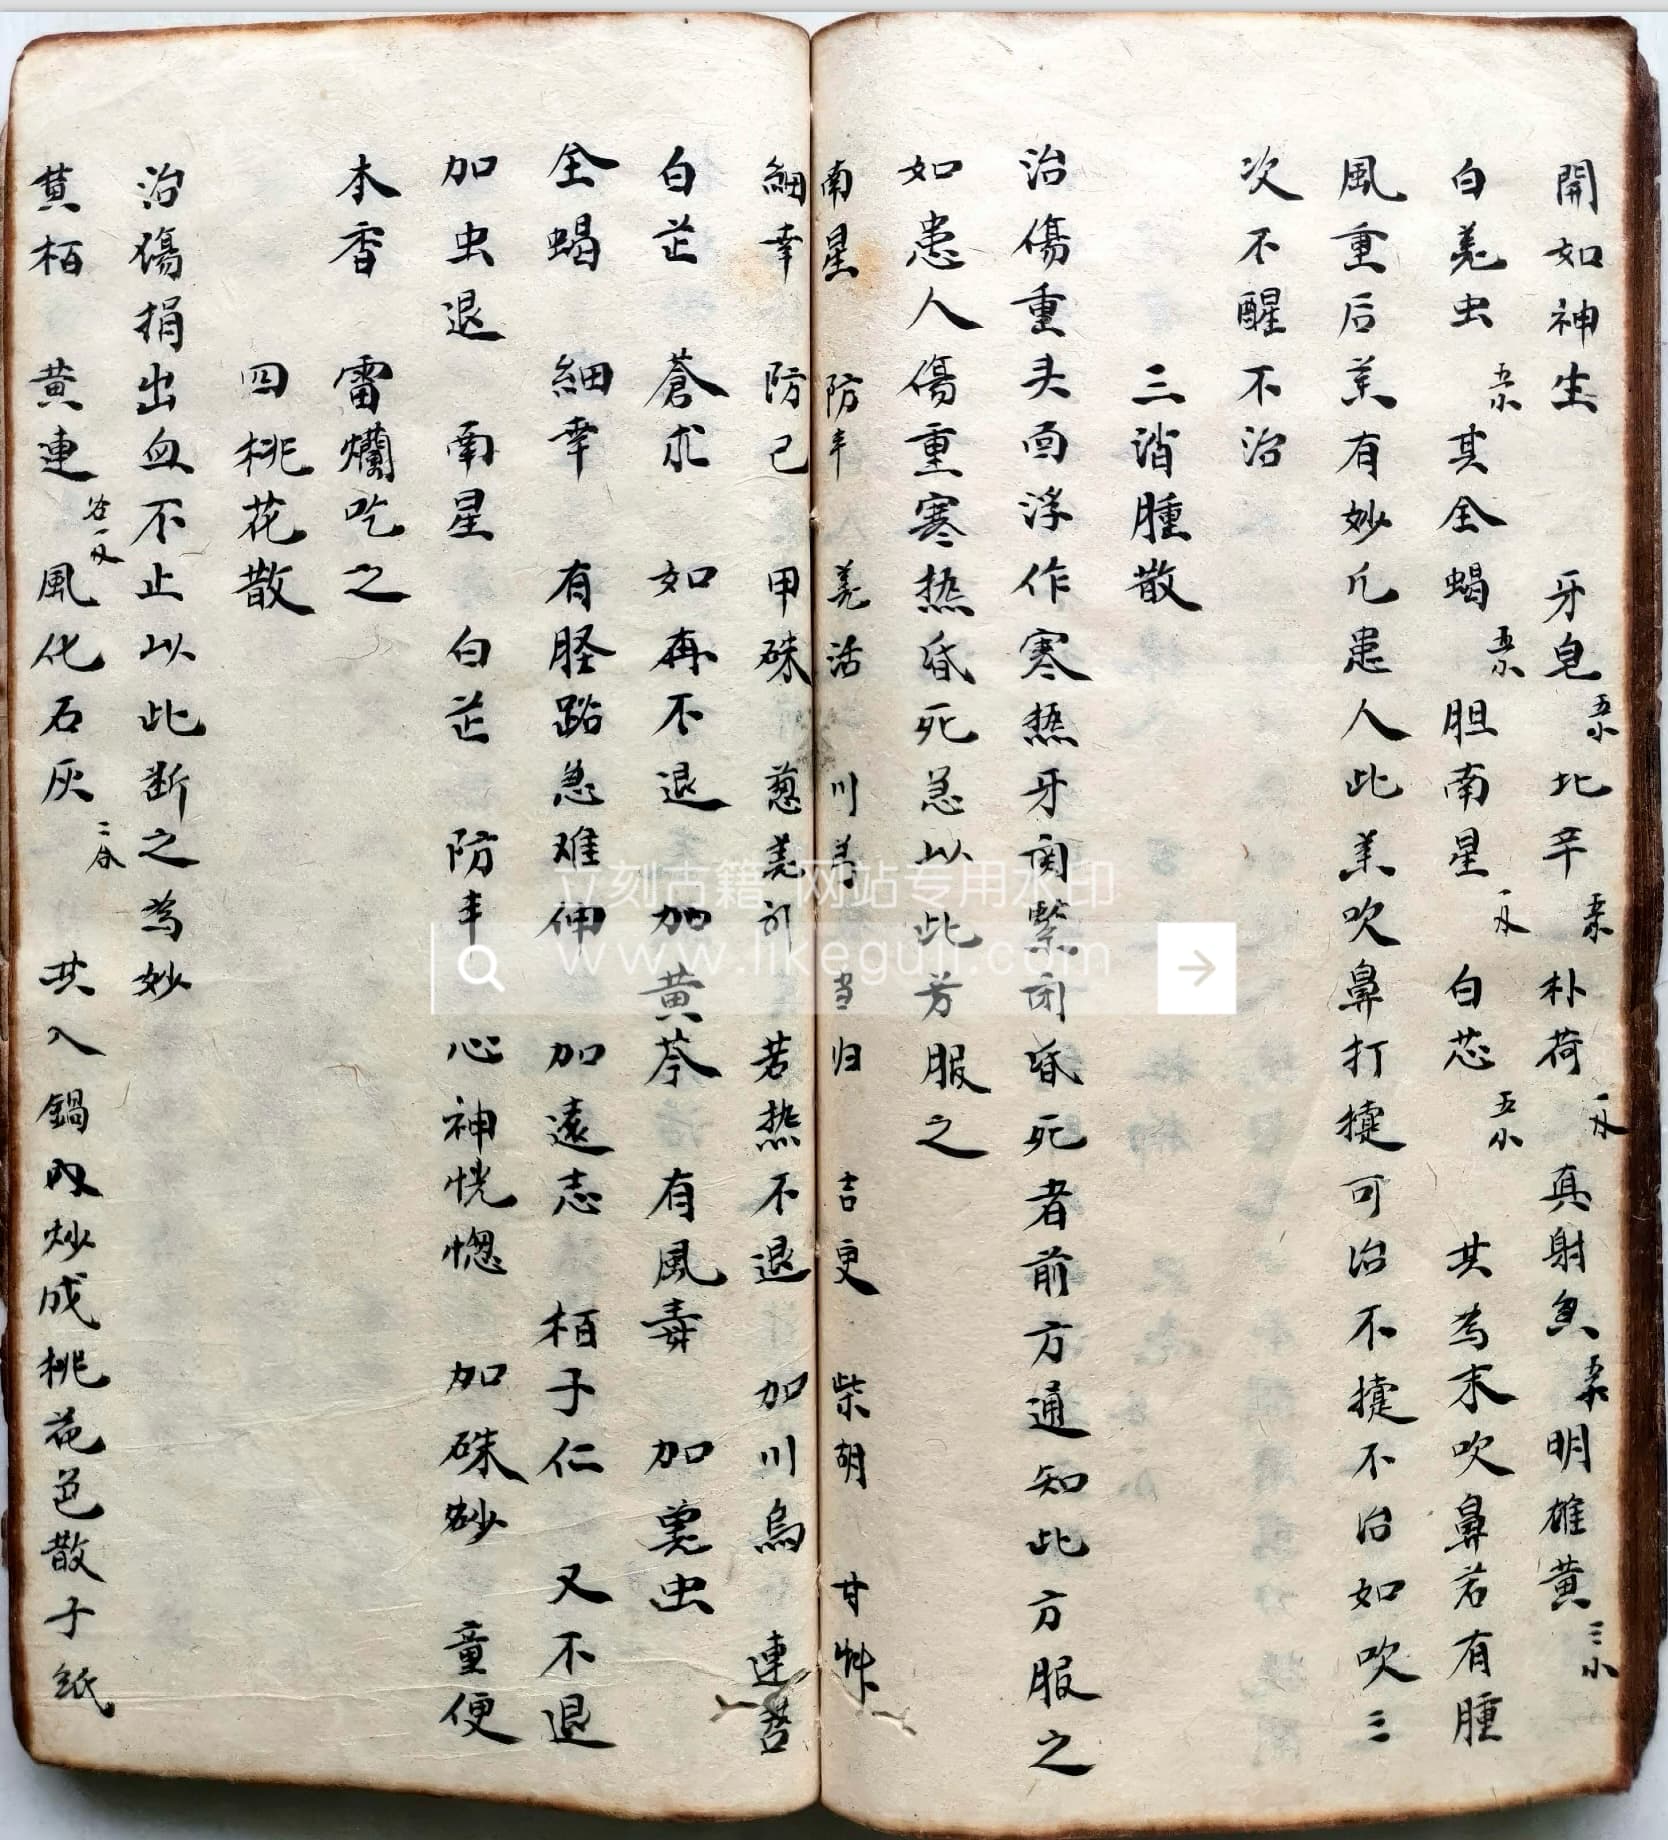 開如神生 牙皂五小 北辛五小 朴荷一小 真射魚五小 明雄黄三小
白羌虫五小 其全蝎五小 胆南星一小 白芯五小 共為末吹鼻若有腫
風重后羔有妙凢患人此羔吹鼻打㨗可治不㨗不治如吹三
次不醒不治
三消腫散
治傷重头面浮作寒热牙関緊闭昏死者前方通知此方服之
如患人傷重寒热昏死急以此芳服之
南星 防丰 羌活 川芎 当归 吉更 柴胡 甘艸
細幸 防己 甲硃 若热不退 加川烏 連苔
白芷 蒼朮 如再不退 加黄芩 有風毒 加羌虫
全蝎 細幸 有胫跲急难伸 加遠志 柏子仁 又不退
加虫退 南星 白芷 防丰 心神恍惚 加硃砂 童便
木香 雷爛吃之
四桃花散
治傷捐出血不止以此断之為妙
黄栢 黄連 風化石灰 共入鍋內炒成桃花色散子紙
立刻古籍 网站专用水印
www.likeguji.com